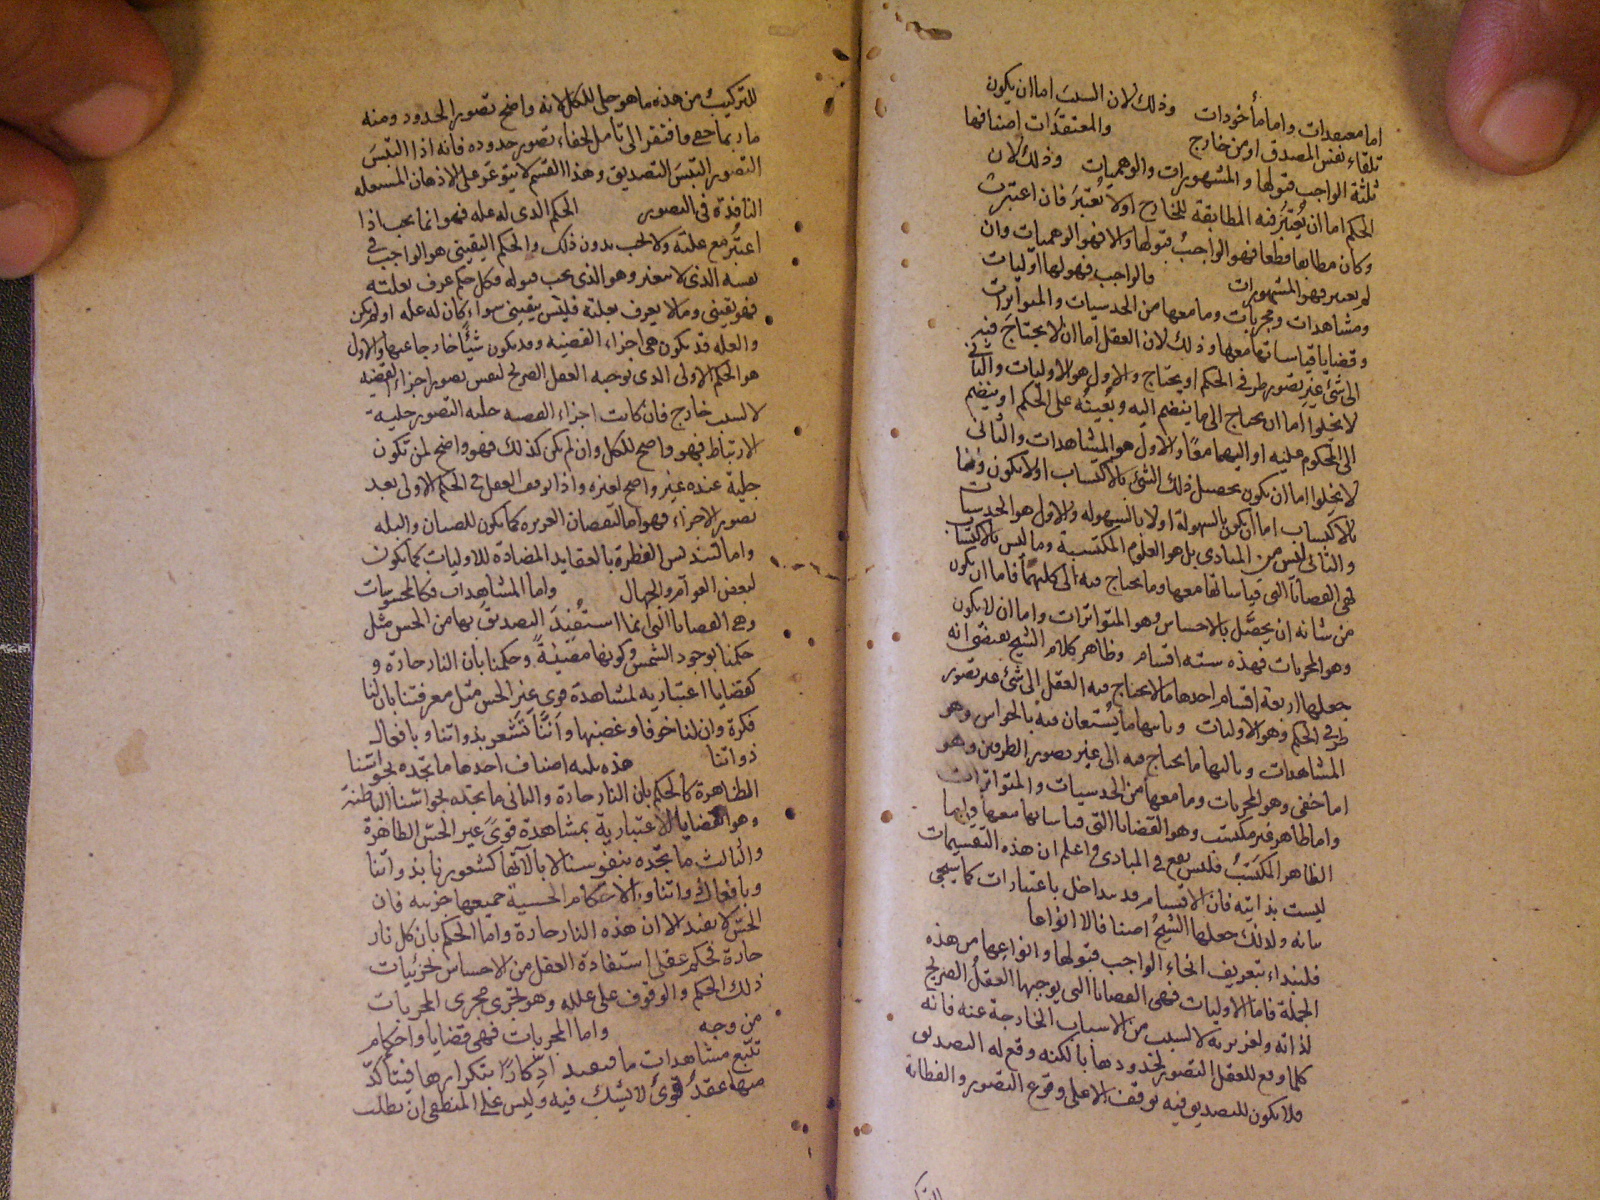 اما معتقدات واما مأخوذات وذلك لان السبب اما ان يكون
تلقاء نفس المصدق او من خارج والمعتقدات اصنافها
ثلثة الواجب قبولها والمشهورات والوهميات وذلك لان
الحكم اما ان يُعتبرَ فيه المطابقة للخارج اولا يُعتبرَ فان اعتبرت
وكان مطابقا قطعا فهو الواجبُ قبولها والا فهو الوهميات وان
لم يعتبر فهو المشهورات فالواجب قبولها اوليات
ومشاهدات ومجربات وما معها من الحدسيات والمتواترات
وقضايا قياساتها معها وذلك لان العقل اما ان لا يحتاج فيه
الى شئ غير تصور طرفى الحكم او يحتاج والاول هو الاوليات والثانى
لا يخلوا اما ان يحتاج الى ما ينضم اليه ويُعينُه على الحكم او ينضم
الى المحكوم عليه او اليهما معًا والاول هو المشاهدات والثانى
لا يخلوا اما ان يكون تحصيل ذلك الشئ بالاكتساب اولا يكون وما
بالاكتساب اما ان يكون بالسهولة اولا بالسهوله والاول هو الحدسيات
والثانى ليس من المبادى بل هو العلوم المكتسبة وما ليس بالاكتساب
فهى القضايا التى قياساتها معها وما يحتاج فيه الى كليهما فاما ان يكون
من شانه ان يحصّل بالاحساس وهو المتواترات واما ان لا يكون
وهو المجربات فهذه ستة اقسام وظاهر كلام الشيخ يقتضى انه
جعلها اربعة اقسام احدها ما لا يحتاج فيه العقل الى شئ غير تصور
طرفى الحكم وهو الاوليات وثانيها ما يُستعان فيه بالحواس وهو
المشاهدات وثالثها ما يحتاج فيه الى غير تصور الطرفين وهو
اما خفى وهو المجربات وما معها من الحدسيات والمتواترات
واما ظاهر غير مكتسب وهو القضايا التى قياساتها معها واما
الظاهر المكتسَبُ فليس يقع فى المبادى واعلم ان هذه التقسيمات
ليست بذاتية فان الاقسام قد تتداخل باعتبارات كما سيجى
بيانه ولذلك جعلها الشيخُ اصنافا لا انواعا
فلنبداء بتعريف انحاء الواجب قبولها وانواعها من هذه
الجملة فاما الاوليات فهى القضايا التى يوجبها العقلُ الصريح
لذاته ولغريزته لا لسبب من الاسباب الخارجة عنه فانه
كلما وقع للعقل التصور لحدودها بالكنه وقع له التصديق
فلا يكون للتصديق فيه توقف الا على وقوع التصور والفطانة
للتركيب من هذه ما هو جلى للكل لانه واضح تصور الحدود ومنه
ما ربما خفى وافتقر الى تأمل لخفاء تصور حدوده فانه اذا التبسَ
التصور التبسَ التصديق وهذا القسم لا يتوعّر على الاذهان المشتعله
النافذة فى التصور الحكم الذى له عله فهو انما يجب اذا
اعتُبر مع علته ولا يجب بدون ذلك والحكم اليقينى هو الواجب فى
نفسه الذى لا يتغير وهو الذى يجب قبوله فكل حكم عرف بعلته
فهو يقينى وما لا يعرف بعلته فليس بيقينى سواء كان له عله او لم يكن
والعله قد يكون هى اجزاء القضيه وقد يكون شيئًا خارجا عنها والاول
هو الحكم الاولى الذى يوجبه العقل الصريح لنفس تصور اجزاء القضيه
لا لسبب خارج فان كانت اجزاء القضيه جليه التصور جلية
الارتباط فهو واضح للكل وان لم يكن كذلك فهو واضح لمن تكون
جليةً عنده غير واضح لغيره واذا توقف العقل فى الحكم الاولى بعد
تصور الاجزاء فهو اما لنقصان الغريزه كما يكون للصبيان والبله
واما لتدنس الفطرة بالعقايد المضادة للاوليات كما يكون
لبعض العوام والجهال واما المشاهدات فكالمحسوسات
وهى القضايا التى انما استفيدَ التصديق بها من الحس مثل
حكمنا بوجود الشمس وكونها مضيئةً وحكمنا بان النار حارة و
كقضايا اعتباريه لمشاهدة قوى غير الحس مثل معرفتنا بان لنا
فكرة وان لنا خوفا وغضبا وأنّا نَشعر بذواتنا وبافعال
ذواتنا هذه ثلثه اصناف احدها ما نجده بحواسّنا
الظاهرة كالحكم بان النار حارة والثانى ما نجده بحواسنا الباطنة
وهو القضايا الاعتبارية بمشاهدة قوىً غير الحسّ الظاهرة
والثالث ما نجّده بنفوسنا لا بالآتها كشعورنا بذواتنا
وبافعال ذواتنا والاحكام الحسية جميعها جزئيه فان
الحسّ لا يفيد الا ان هذه النار حارة واما الحكم بان كل نار
حارة فحكم عقلى استفادة العقل من الاحساس بجزئيات
ذلك الحكم والوقوف على علله وهو يجرى مجرى المجربات
من وجه واما المجربات فهى قضايا واحكام
تتبّع مشاهدات منا تفيد اذكارًا بتكرارها فيتأكّد
منها عقدٌ قوىٌ لا يشك فيه وليس على المنطقى ان يطلب